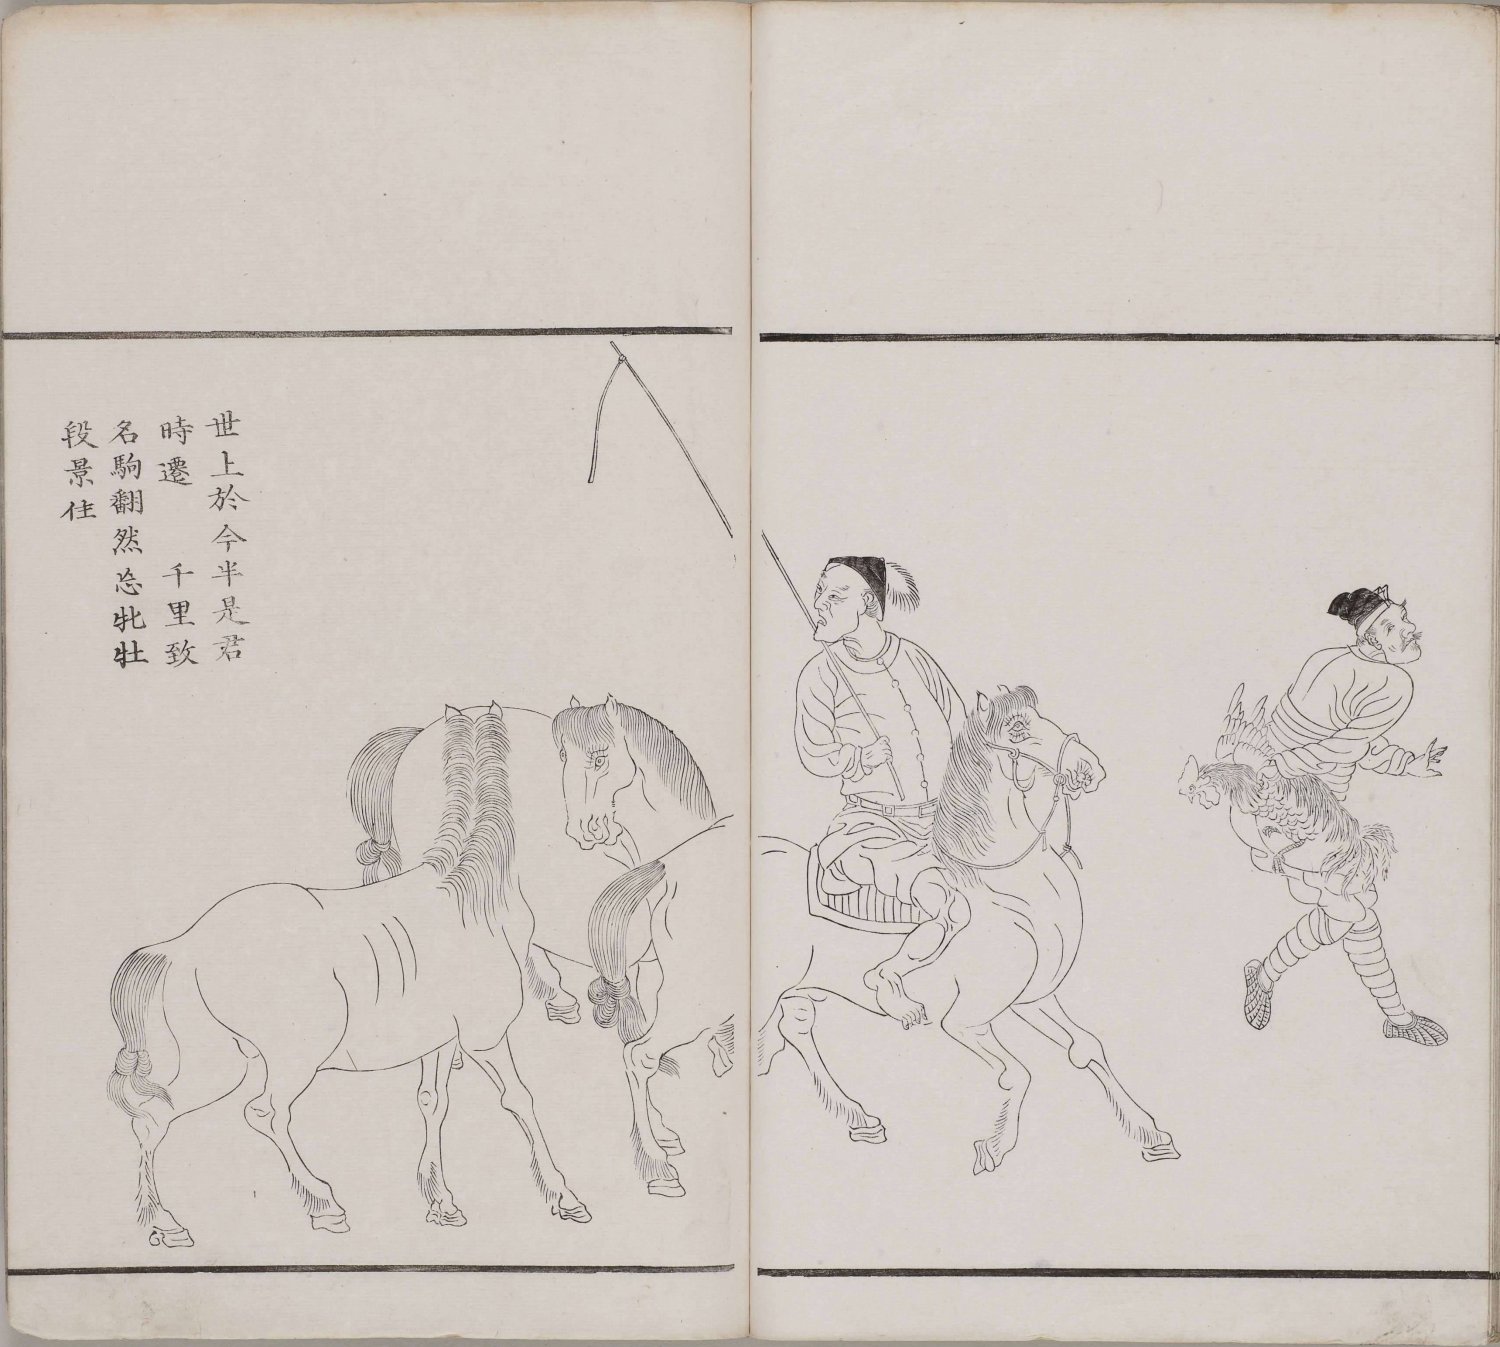 世上於今半是君
時遷　千里致
名駒翻然忘牝牡
段景住